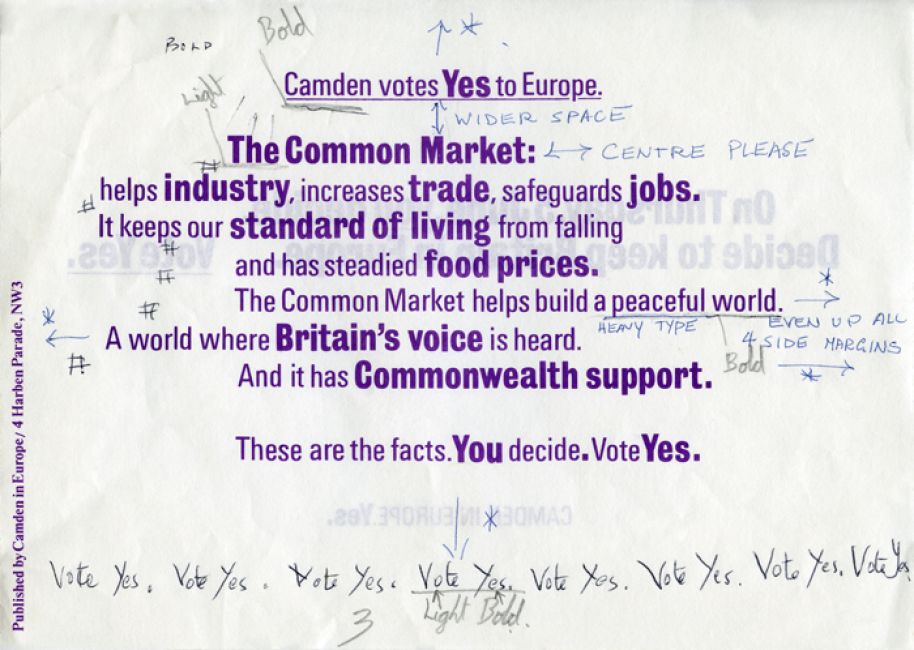 BOLD Bold
*
Light
Camden votes Yes to Europe.
WIDER SPACE
The Common Market: CENTRE PLEASE
#
# helps industry, increases trade, safeguards jobs.
It keeps our standard of living from falling
#
and has steadied food prices.
#
The Common Market helps build a peaceful world. *
#
* A world where Britain's voice is heard. HEAVY TYPE EVEN UP ALL
4 SIDE MARGINS
# Bold
*
And it has Commonwealth support.
These are the facts. You decide. Vote Yes.
*
Vote Yes. Vote Yes. Vote Yes. Vote Yes. Vote Yes. Vote Yes. Vote Yes. Vote Yes.
Light Bold.
3
Published by Camden in Europe/4 Harben Parade, NW3
On Thursday
Decide to keep Britain in Europe. Vote Yes.
CAMDEN IN EUROPE. Yes.